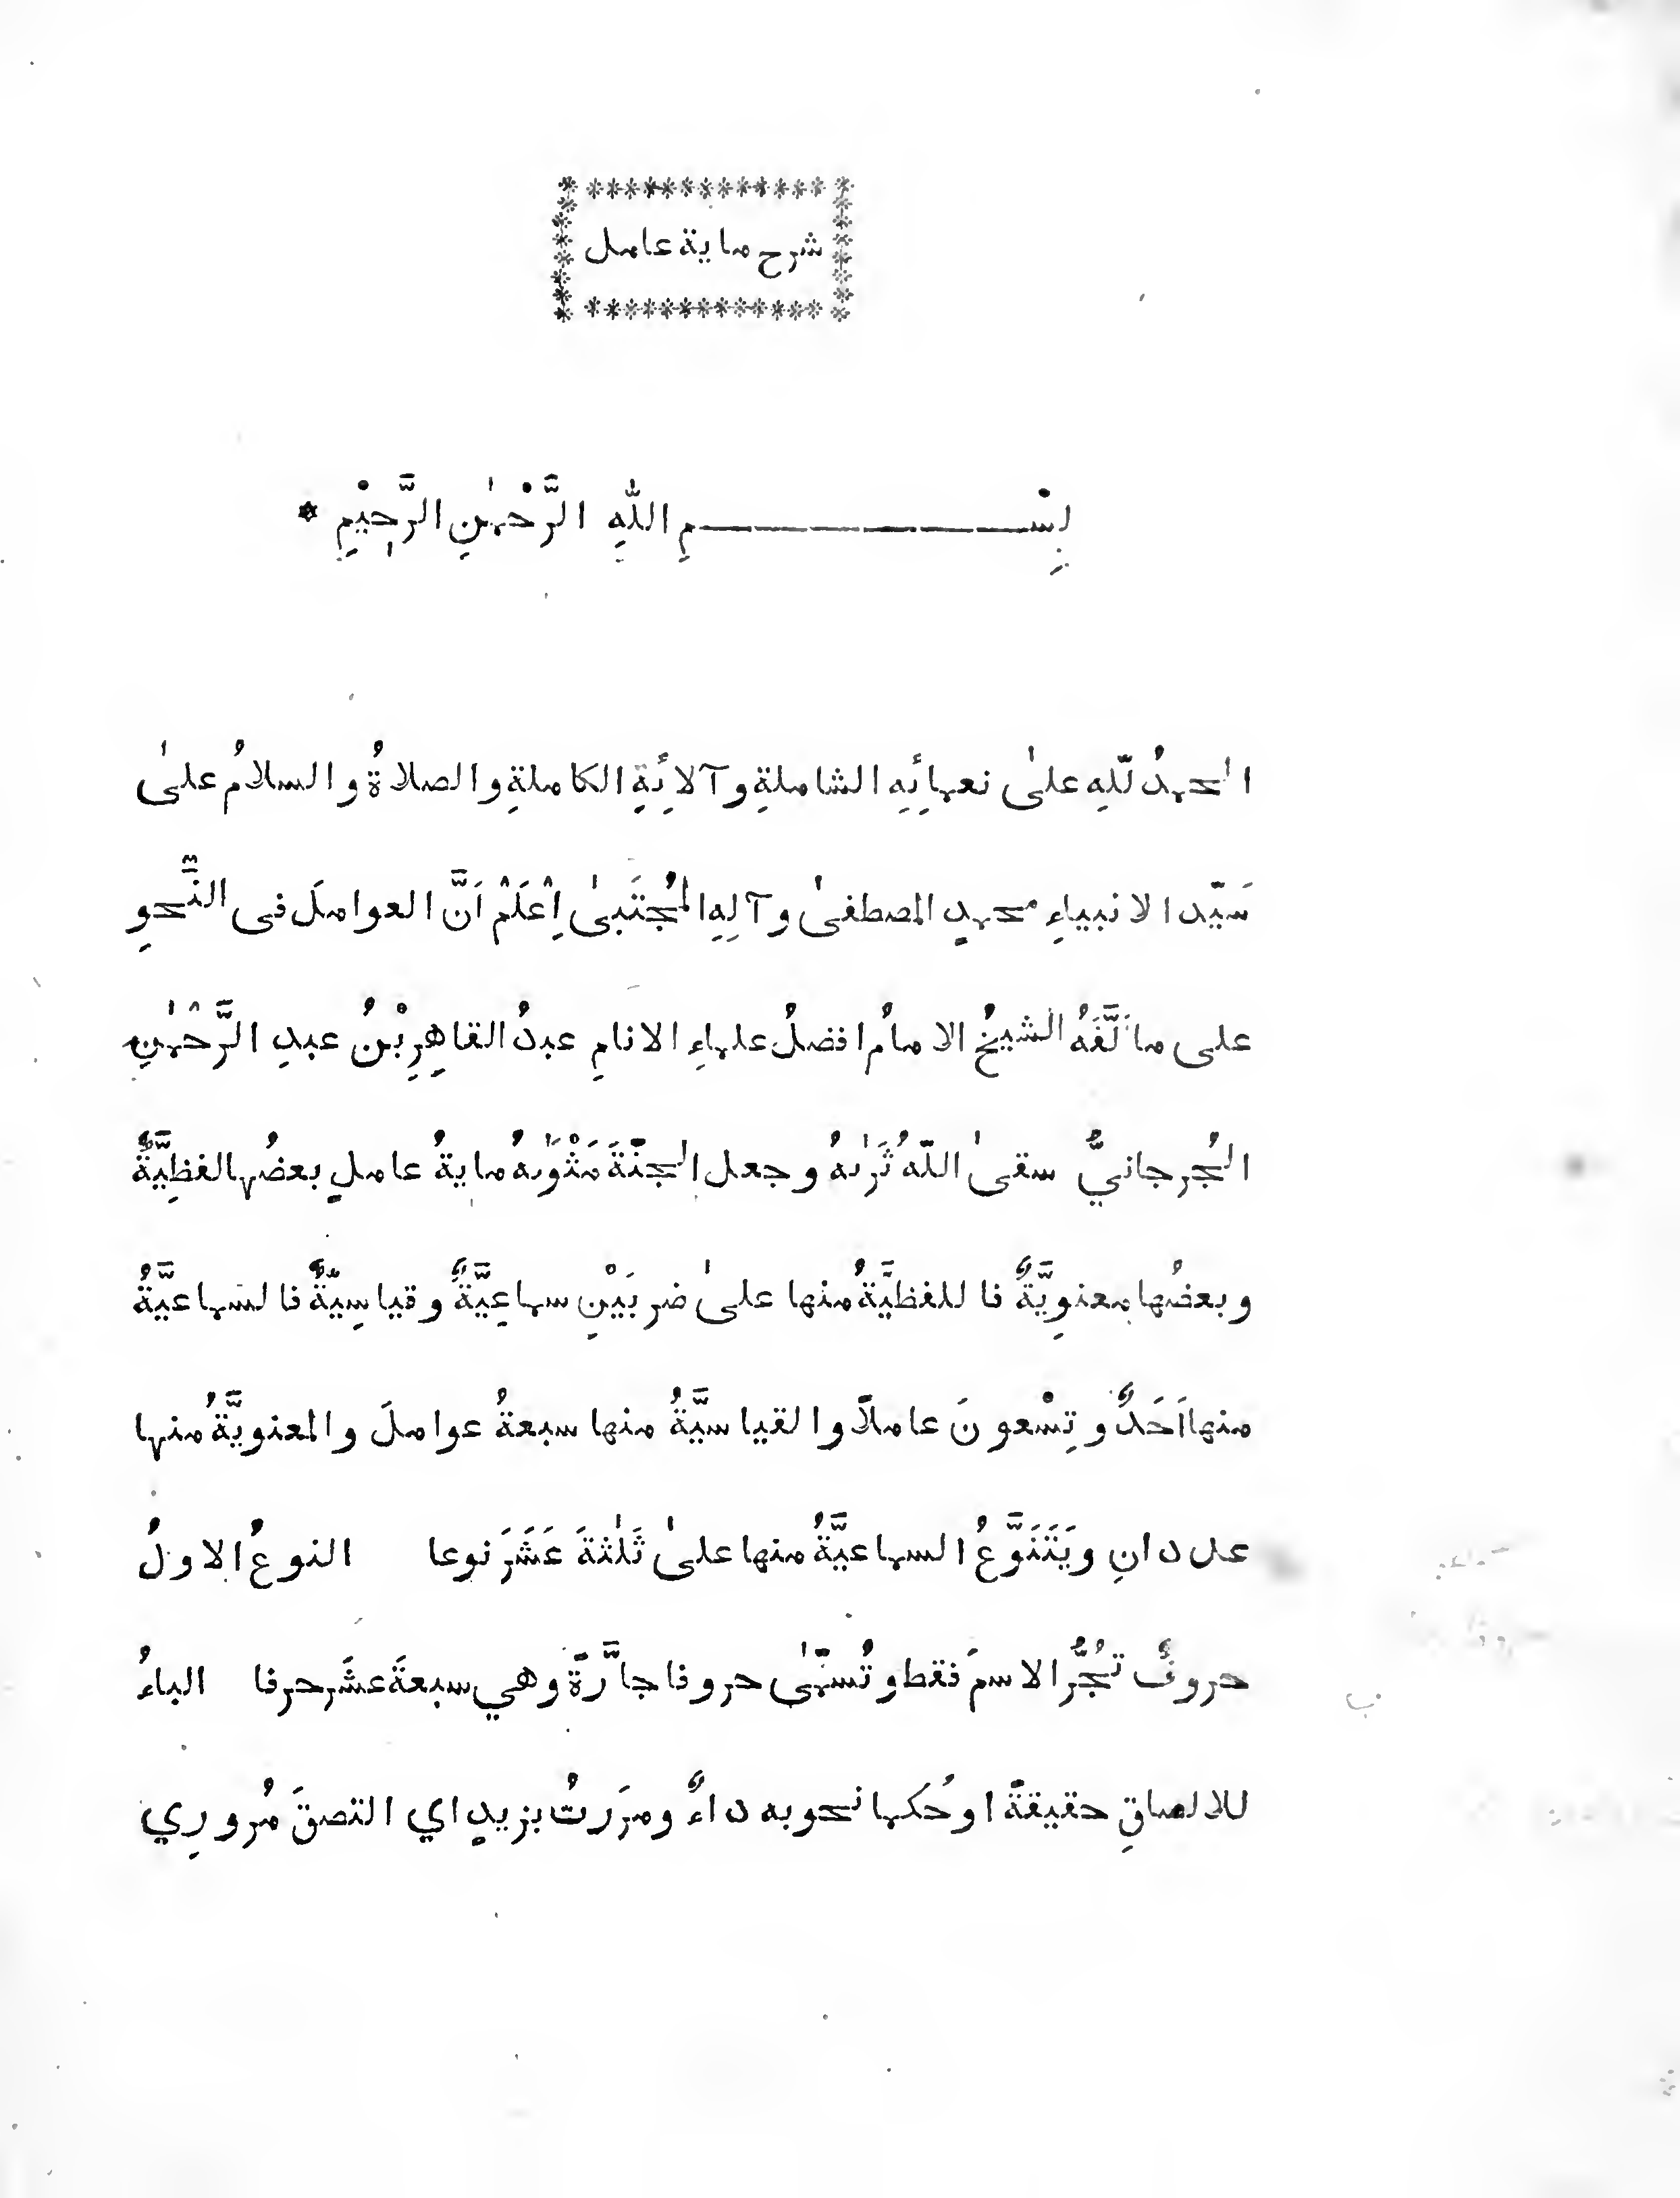 شرح ماية عامل
بِسْمِ اللّٰهِ الرَّحْمٰنِ الرَّحِيْمِ *
الحمدُ لِلّٰهِ علىٰ نعمائِهِ الشاملةِ وآلائِةِ الكاملةِ والصلاةُ والسلامُ علىٰ
سَيّد الانبياءِ محمدٍ المصطفىٰ وآلِهِ المُجْتَبىٰ اِعْلَمْ اَنَّ العواملَ فى النَّحوِ
على ما اَلَّفَهُ الشيخُ الامامُ افضلُ علماءِ الانامِ عبدُ القاهِرِ بْنُ عبدِ الرَّحْمٰنِ
الجُرجانيُّ سقىٰ اللّٰهُ ثَرٰىهُ وجعل الجنّةَ مَثْوٰىهُ مايةُ عاملٍ بعضُها لفظِيَّةٌ
وبعضُها معنوِيَّةٌ فاللفظيَّةُ منها علىٰ ضربَيْنِ سماعِيَّةٌ وقياسِيّةٌ فالسماعيَّةُ
منها اَحَدٌ وتِسْعونَ عاملًا والقياسيَّةُ منها سبعةُ عواملَ والمعنويَّةُ منها
عددانِ ويَتَنَوَّعُ السماعيَّةُ منها علىٰ ثَلٰثةَ عَشَرَ نوعا النوعُ الاولُ
حروفٌ تَجُرُّ الاسمَ فقط وتُسمّىٰ حروفا جارَّةً وهي سبعةَ عشَر حرفا الباءُ
للالصاقِ حقيقةً او حُكما نحو به داءٌ ومرَرتُ بزيدٍ اي التصقَ مُروري